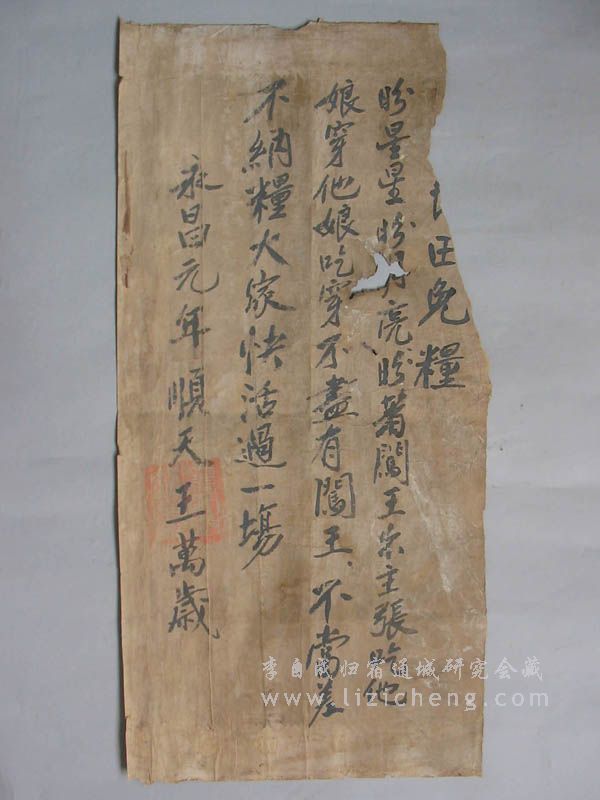 田免糧
盼星星盼月亮盼著闖王出主張吃他
娘穿他娘吃穿不盡有闖王不當差
不納糧大家快活過一塲
永昌元年順天王萬歲
李自成归宿通城研究会藏
www.lizicheng.com